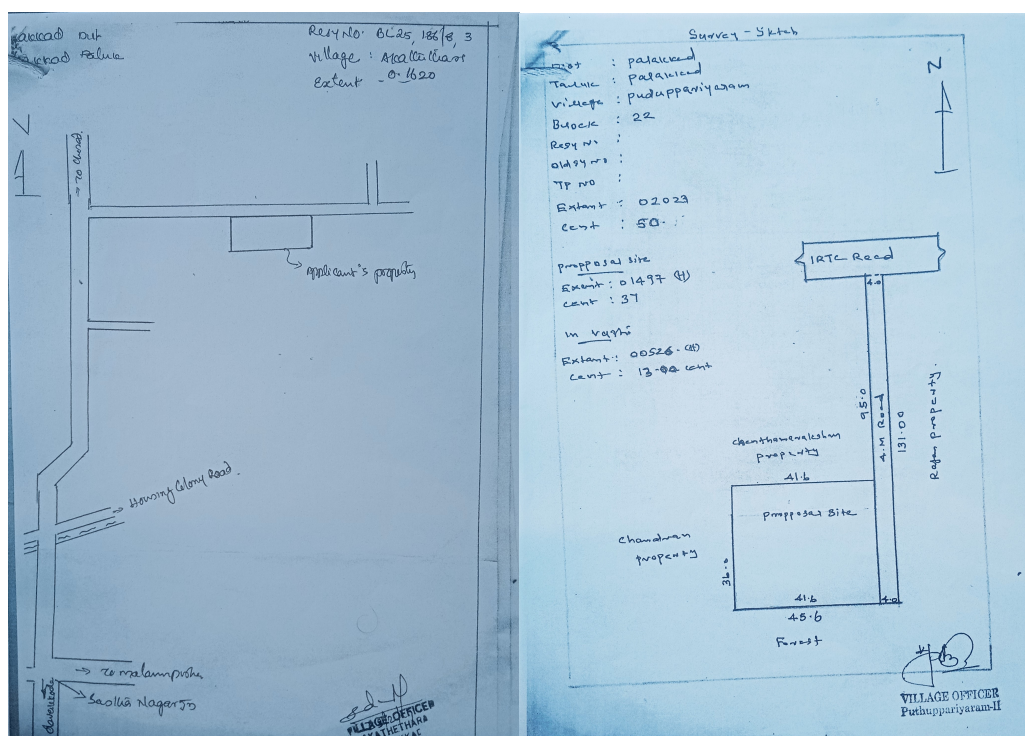 Dist
Taluk
Resy No: BL 25, 186/8, 3
Village : Akathethara
Extent - 0.1620
→ To
Applicant's property
Housing Colony Road.
→ To malampuzha
Sastha Nagar Jn
VILLAGE OFFICER
AKATHETHARA
Survey - Sktch
Dist : palakkad
Taluk : palakkad
Village : puduppariyaram
Block : 22
Resy No :
Old Sy No :
TP NO :
Extant : 02023
Cent : 50.
propposal site
Exent : 01497 (H)
Cent : 37
Extant : 00526 (H)
Cent : 13 Cent
IRTC Road
4.0
95.0
4.M Road
131.00
Rajan property.
property
41.6
propposal site
Chandran
property
36.0
41.6
4.0
45.6
Forest
VILLAGE OFFICER
Puthuppariyaram-II